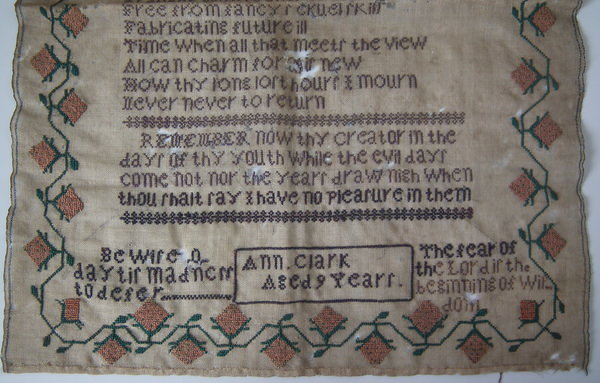 Free from fancys cruel skill
Fabricating future ill
Time When all that meets the view
All can Charm for tis new
How thy long lost hours I mourn
Never never to return
REMEMBER now thy Creator in the
days of thy youth While the evil days
come not nor the years draw nigh When
thou shalt say I have no pleasure in them
Be wise o
daytis madness
to defer
Ann. Clark
Aged 9 Years.
The fear of
the Lord is the
beginning of Wis
dom